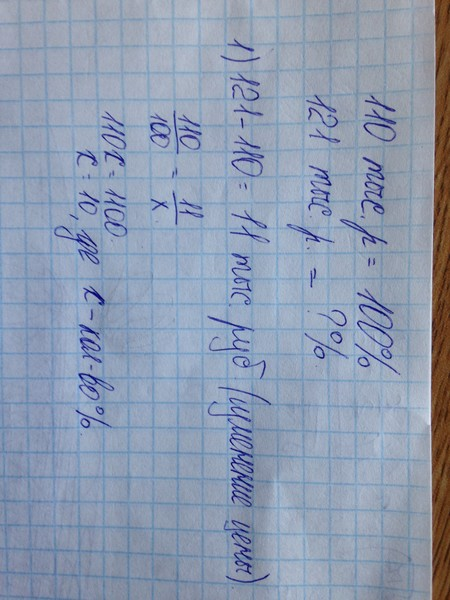 110 тыс. р = 100%
121 тыс. р. = ?%
1) 121 - 110 = 11 тыс. руб (изменение цены)
110/100 = 11/x
110x = 1100
x = 10, где x - кол-во %